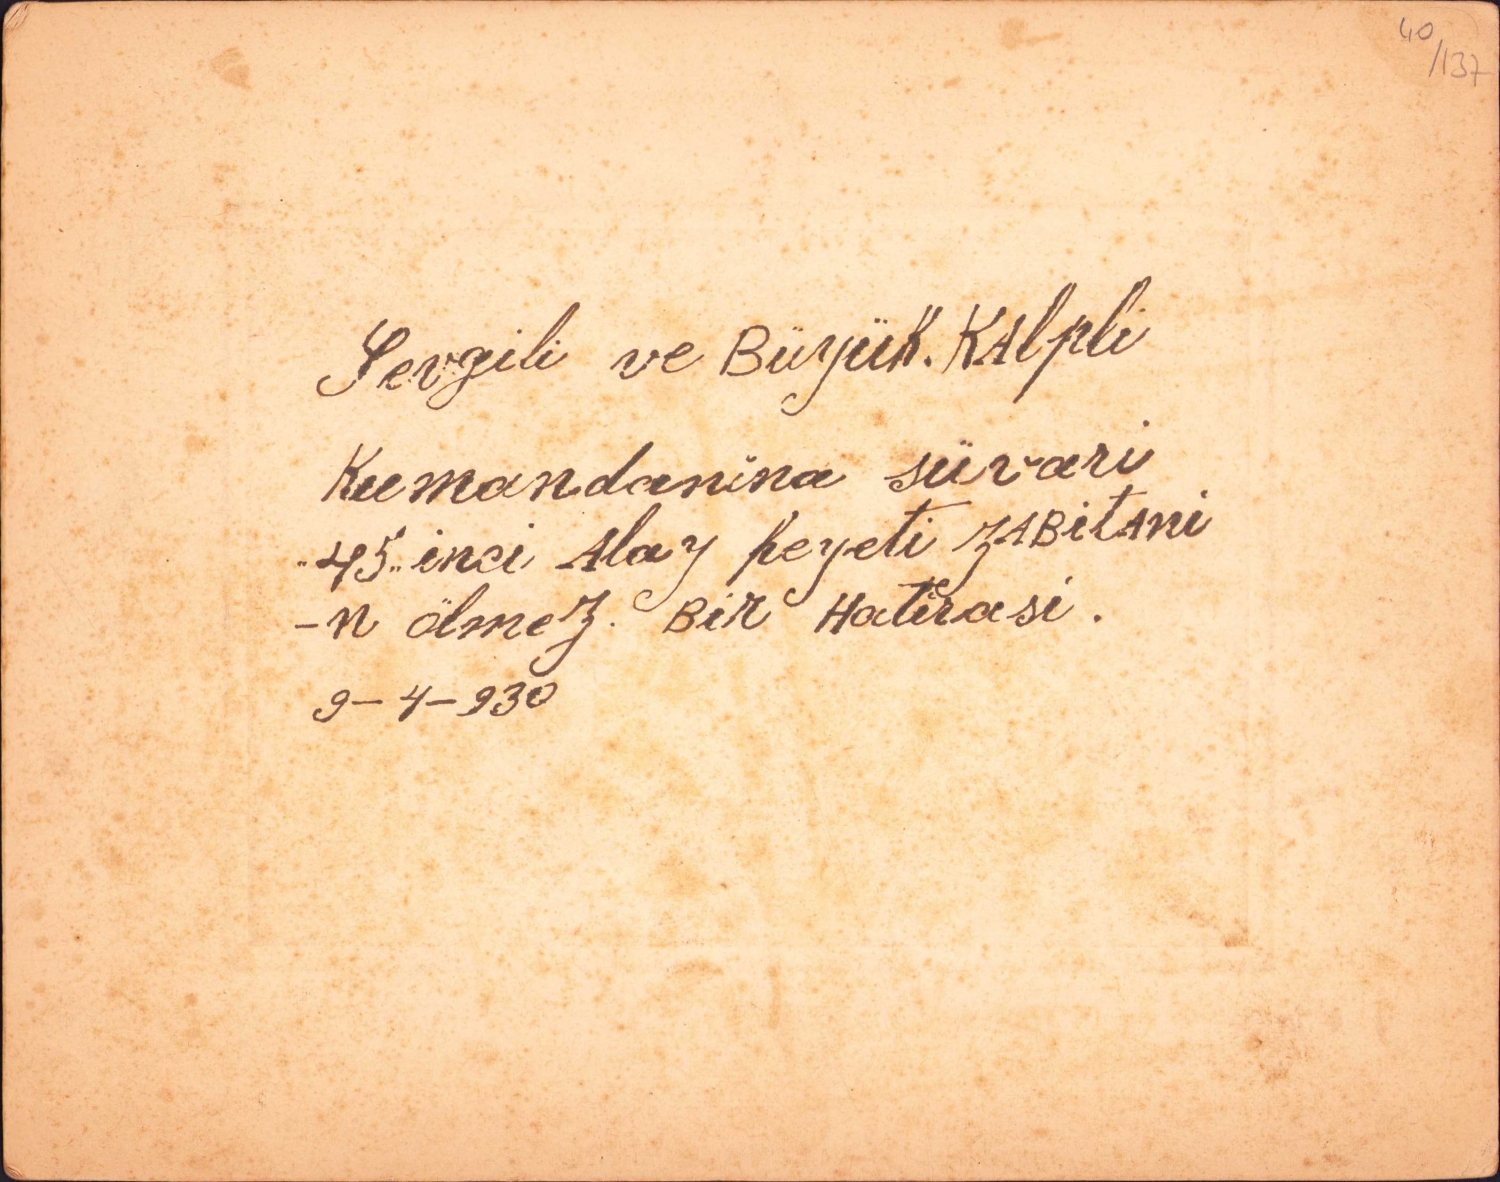 40/137
Sevgili ve Büyük. Kalpli
Kumandanina süvari
"45" inci Alay heyeti ZABitAni
-n ölmez. Bir Hatirasi.
9-4-930